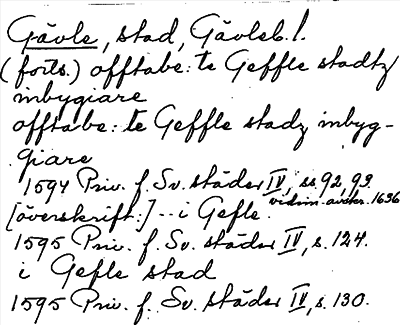 Gävle, stad, Gävleb. l.
(forts.) offtabe: te Geffle stadtz
inbygiare
offtabe: te Geffle stadz inbyg-
giare
1594 Priv. f. Sv. städer IV, ss. 92, 93.
vidim. avskr. 1636
[överskrift:] -- i Gefle.
1595 Priv. f. Sv. städer IV, s. 124.
i Gefle stad
1595 Priv. f. Sv. städer IV, s. 130.